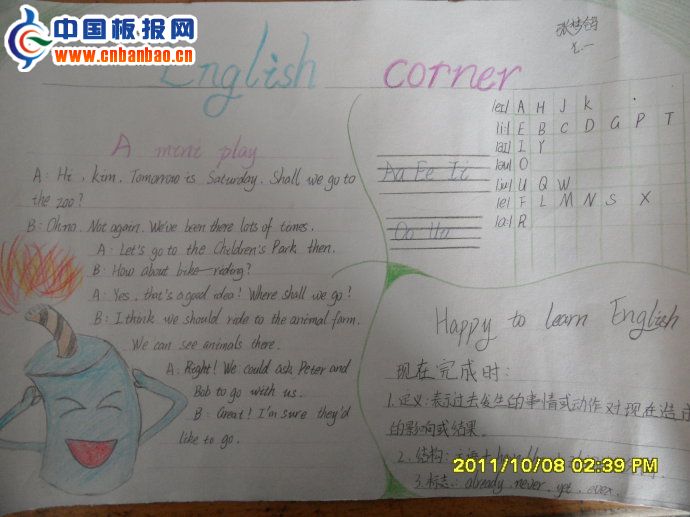 中国板报网
www.cnbanbao.cn
English corner
九.一
A mini play
A: Hi, kim. Tomorrow is Saturday. Shall we go to
the zoo?
B: Oh no. Not again. We've been there lots of times.
A: Let's go to the Children's Park then.
B: How about bike-riding?
A: Yes, that's a good idea! Where shall we go?
B: I think we should ride to the animal farm.
We can see animals there.
A: Right! We could ask Peter and
Bob to go with us.
B: Great! I'm sure they'd
like to go.
Aa Ee Ii
Oo Uu
/ei/ A H J K
/i:/ E B C D G P T
/ai/ I Y
/əu/ O
/ju:/ U Q W
/e/ F L M N S X
/a:/ R
Happy to learn English
现在完成时:
1.定义:表示过去发生的事情或动作对现在造成
的影响或结果。
2.结构:
3.标志:already, never, yet, ever.
2011/10/08 02:39 PM